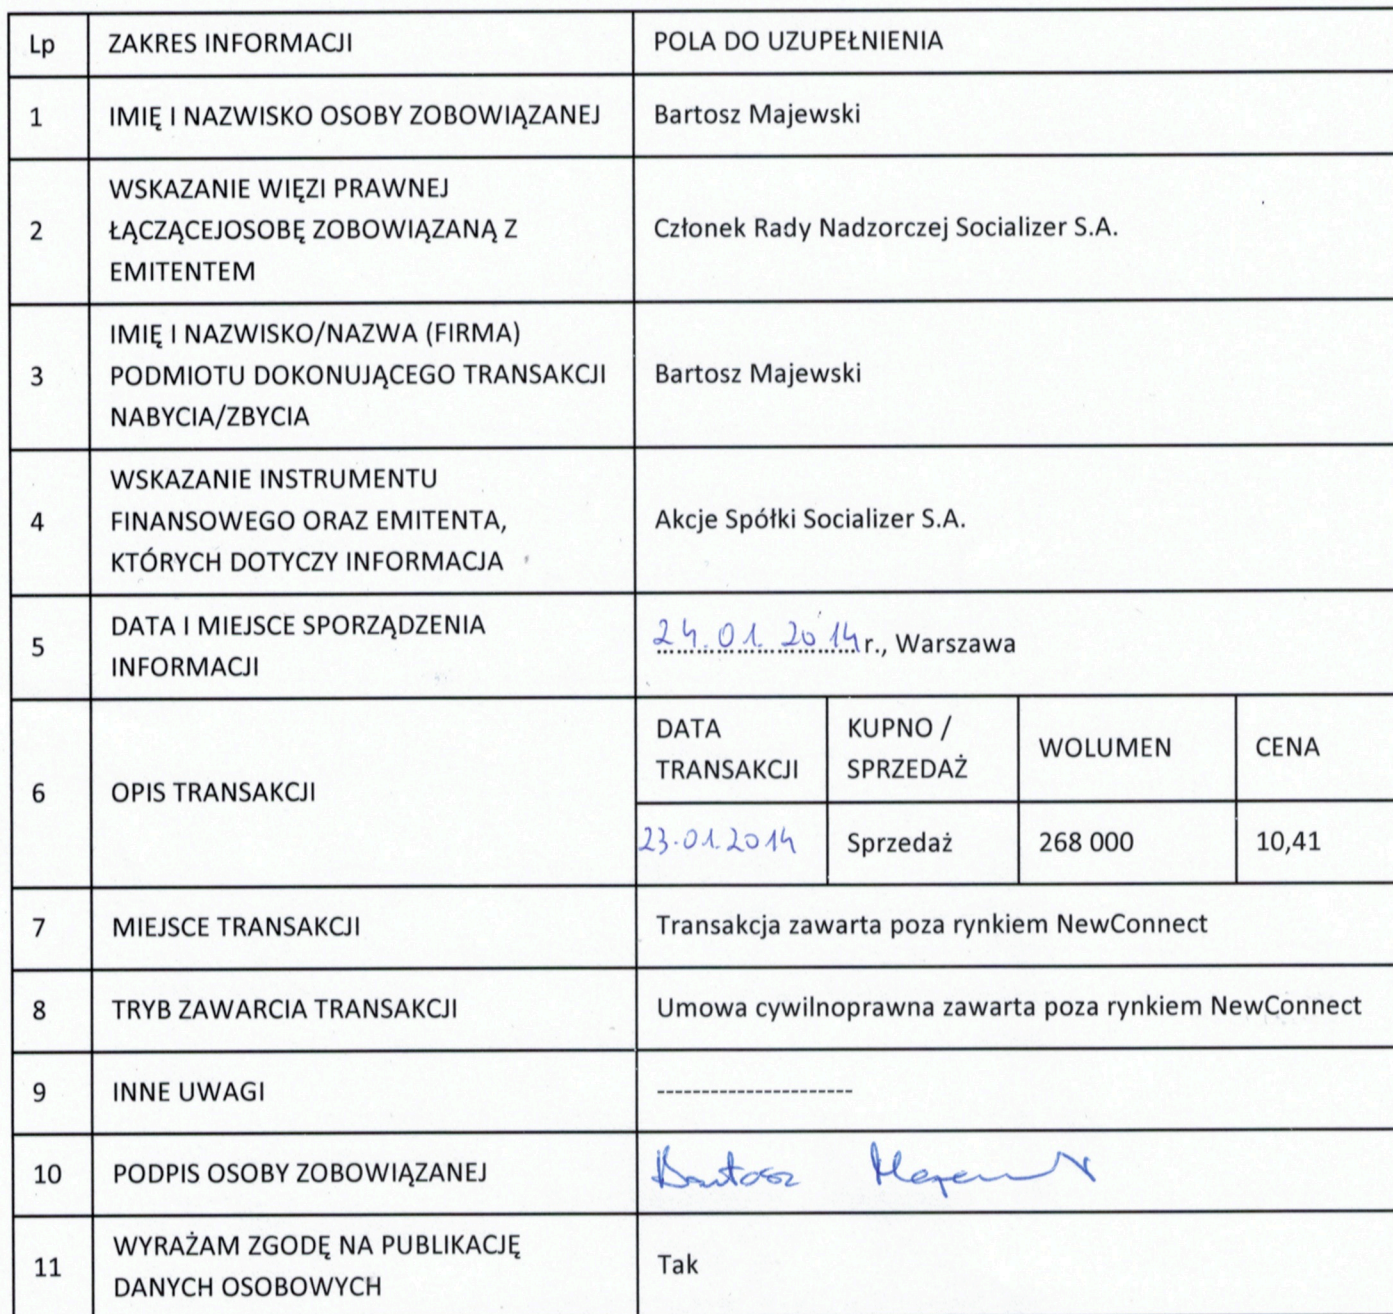 Lp ZAKRES INFORMACJI POLA DO UZUPEŁNIENIA
1 IMIĘ I NAZWISKO OSOBY ZOBOWIĄZANEJ Bartosz Majewski
2 WSKAZANIE WIĘZI PRAWNEJ
ŁĄCZĄCEJOSOBĘ ZOBOWIĄZANĄ Z
EMITENTEM
Członek Rady Nadzorczej Socializer S.A.
3 IMIĘ I NAZWISKO/NAZWA (FIRMA)
PODMIOTU DOKONUJĄCEGO TRANSAKCJI
NABYCIA/ZBYCIA
Bartosz Majewski
4 WSKAZANIE INSTRUMENTU
FINANSOWEGO ORAZ EMITENTA,
KTÓRYCH DOTYCZY INFORMACJA
Akcje Spółki Socializer S.A.
5 DATA I MIEJSCE SPORZĄDZENIA
INFORMACJI
24.01.2014 r., Warszawa
6 OPIS TRANSAKCJI
DATA
TRANSAKCJI
KUPNO /
SPRZEDAŻ
WOLUMEN
CENA
23.01.2014 Sprzedaż 268 000 10,41
7 MIEJSCE TRANSAKCJI Transakcja zawarta poza rynkiem NewConnect
8 TRYB ZAWARCIA TRANSAKCJI Umowa cywilnoprawna zawarta poza rynkiem NewConnect
9 INNE UWAGI ----------------------
10 PODPIS OSOBY ZOBOWIĄZANEJ Bartosz Majewski
11 WYRAŻAM ZGODĘ NA PUBLIKACJĘ
DANYCH OSOBOWYCH
Tak